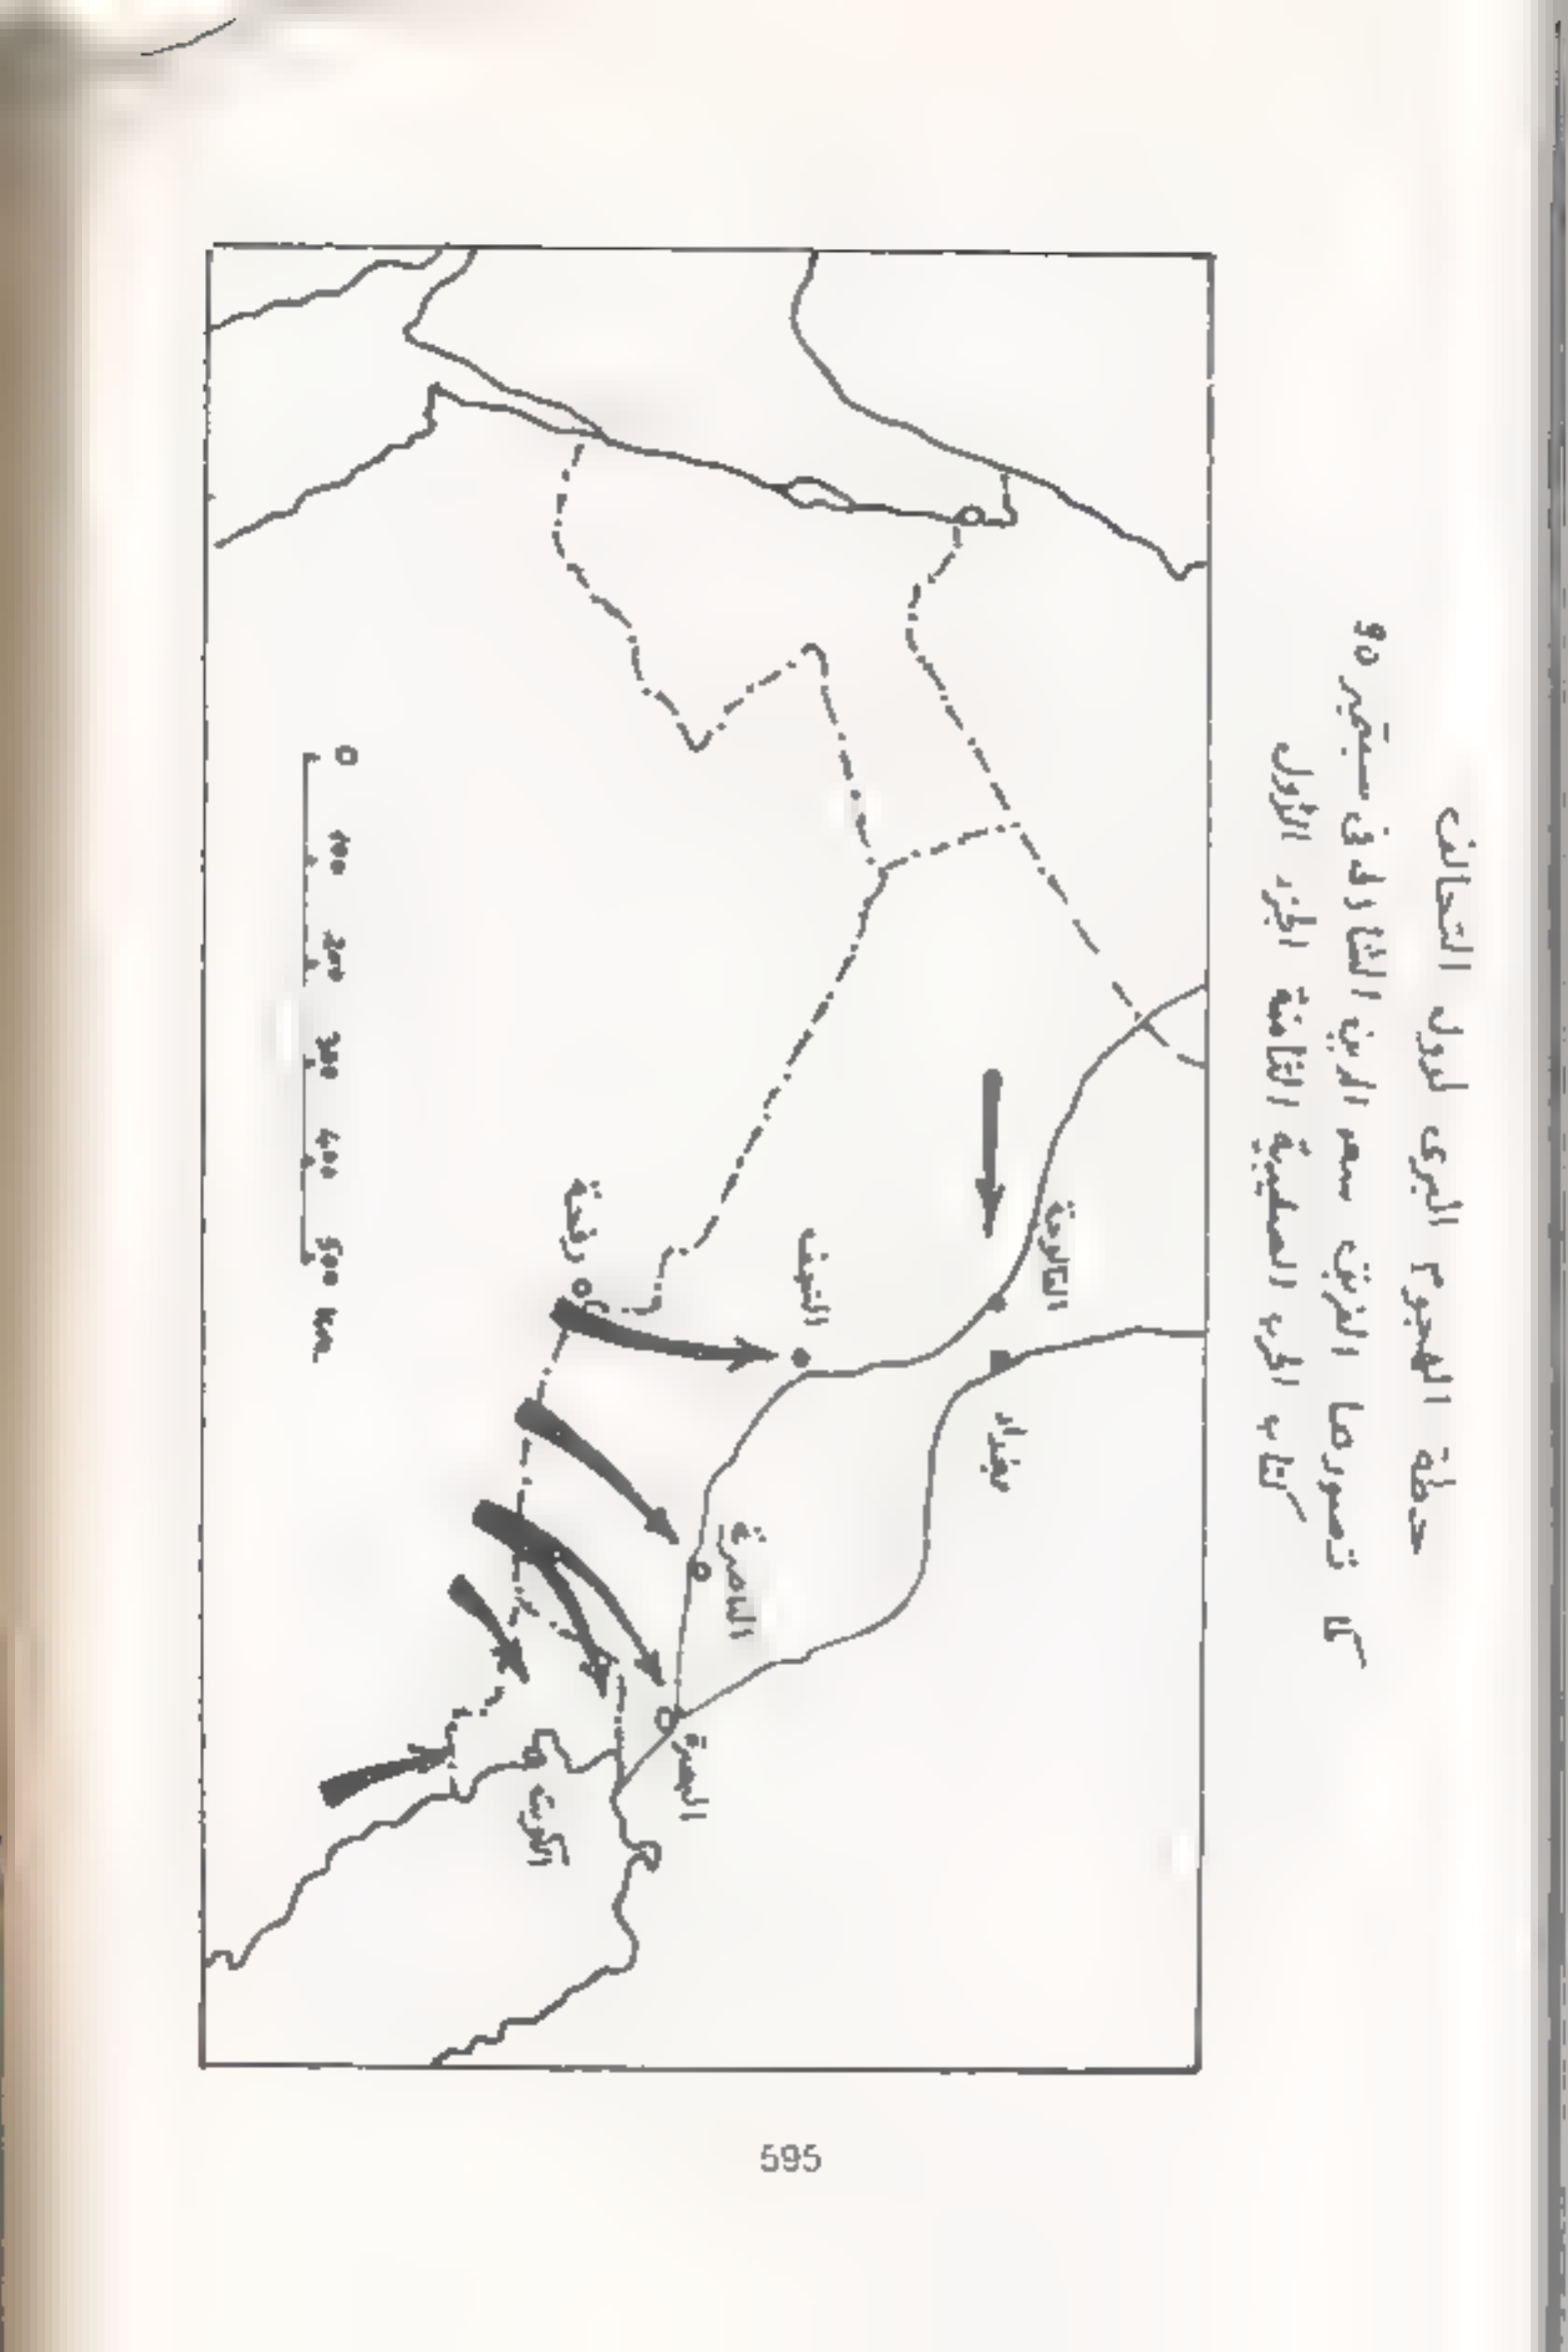 خطة الهجوم البرى لدول التحالف
كما تصورها الفريق سعد الدين الشاذلى فى سبتمبر 90
كتاب الحرب الصليبية الثامنة الجزء الأول
الفالوجة
بغداد
النجف
الناصرية
البصرة
رفحة
الكويت
0 100 200 300 400 500 km
595